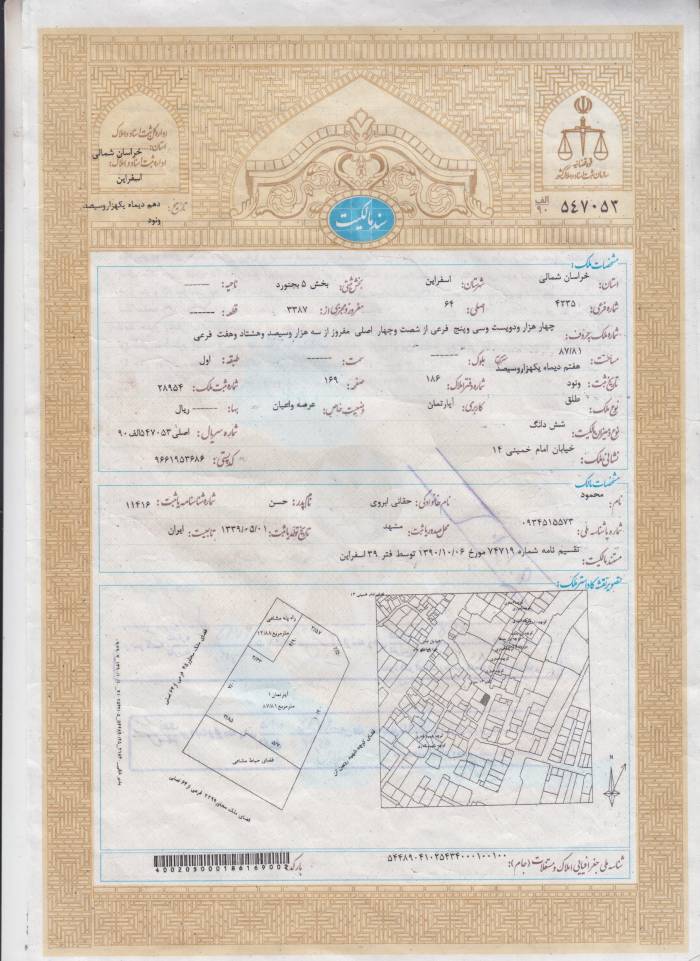 اداره کل ثبت اسناد و املاک
استان: خراسان شمالی
اداره ثبت اسناد و املاک:
اسفراین
تاریخ: دهم دیماه یکهزاروسیصد
ونود
قوه قضائیه
سازمان ثبت اسناد و املاک کشور
۵۴۷۰۵۳ الف ۹۰
سند مالکیت
مشخصات ملک:
استان: خراسان شمالی شهرستان: اسفراین بخش ثبتی: بخش ۵ بجنورد ناحیه: ------
شماره فرعی: ۴۲۳۵ اصلی: ۶۴ مفروز و مجزی از: ۳۳۸۷ قطعه: ------
شماره ملک بحروف: چهار هزار ودویست وسی وپنج فرعی از شصت وچهار اصلی مفروز از سه هزار وسیصد وهشتاد وهفت فرعی
مساحت: ۸۷/۸۱ بلوک: ------ سمت: ------ طبقه: اول
تاریخ ثبت: هفتم دیماه یکهزاروسیصد ونود شماره دفتر املاک: ۱۸۶ صفحه: ۱۶۹ شماره ثبت ملک: ۲۸۹۵۴
نوع ملک: طلق کاربری: آپارتمان وضعیت خاص: عرصه واعیان بها: ------ ریال
نوع و میزان مالکیت: شش دانگ شماره سریال: اصلی ۵۴۷۰۵۳الف۹۰
نشانی ملک: خیابان امام خمینی ۱۴ کد پستی: ۹۶۶۱۹۵۳۶۸۶
مشخصات مالک
نام: محمود نام خانوادگی: حقانی ابروی نام پدر: حسن شماره شناسنامه یا ثبت: ۱۱۴۱۶
شماره یا شناسه ملی: ۰۹۳۴۵۱۵۵۷۳ محل صدور یا ثبت: مشهد تاریخ تولد یا ثبت: ۱۳۳۹/۰۵/۰۱ تابعیت: ایران
مستند مالکیت: تقسیم نامه شماره ۷۴۷۱۹ مورخ ۱۳۹۰/۱۰/۰۶ توسط فتر ۳۹ اسفراین
تصویر نقشه کاداستر ملک:
راه پله مشاعی
۱۲/۸۸ مترمربع
آپارتمان ۱
۸۷/۸۱ مترمربع
فضای حیاط مشاعی
N
شناسه ملی جغرافیایی املاک و مستغلات (جام): ۵۴۴۸۹۰۴۱۰۲۵۴۳۴۰۰۰۱۰۰۱۰۰
بارکد:
400205000186169002